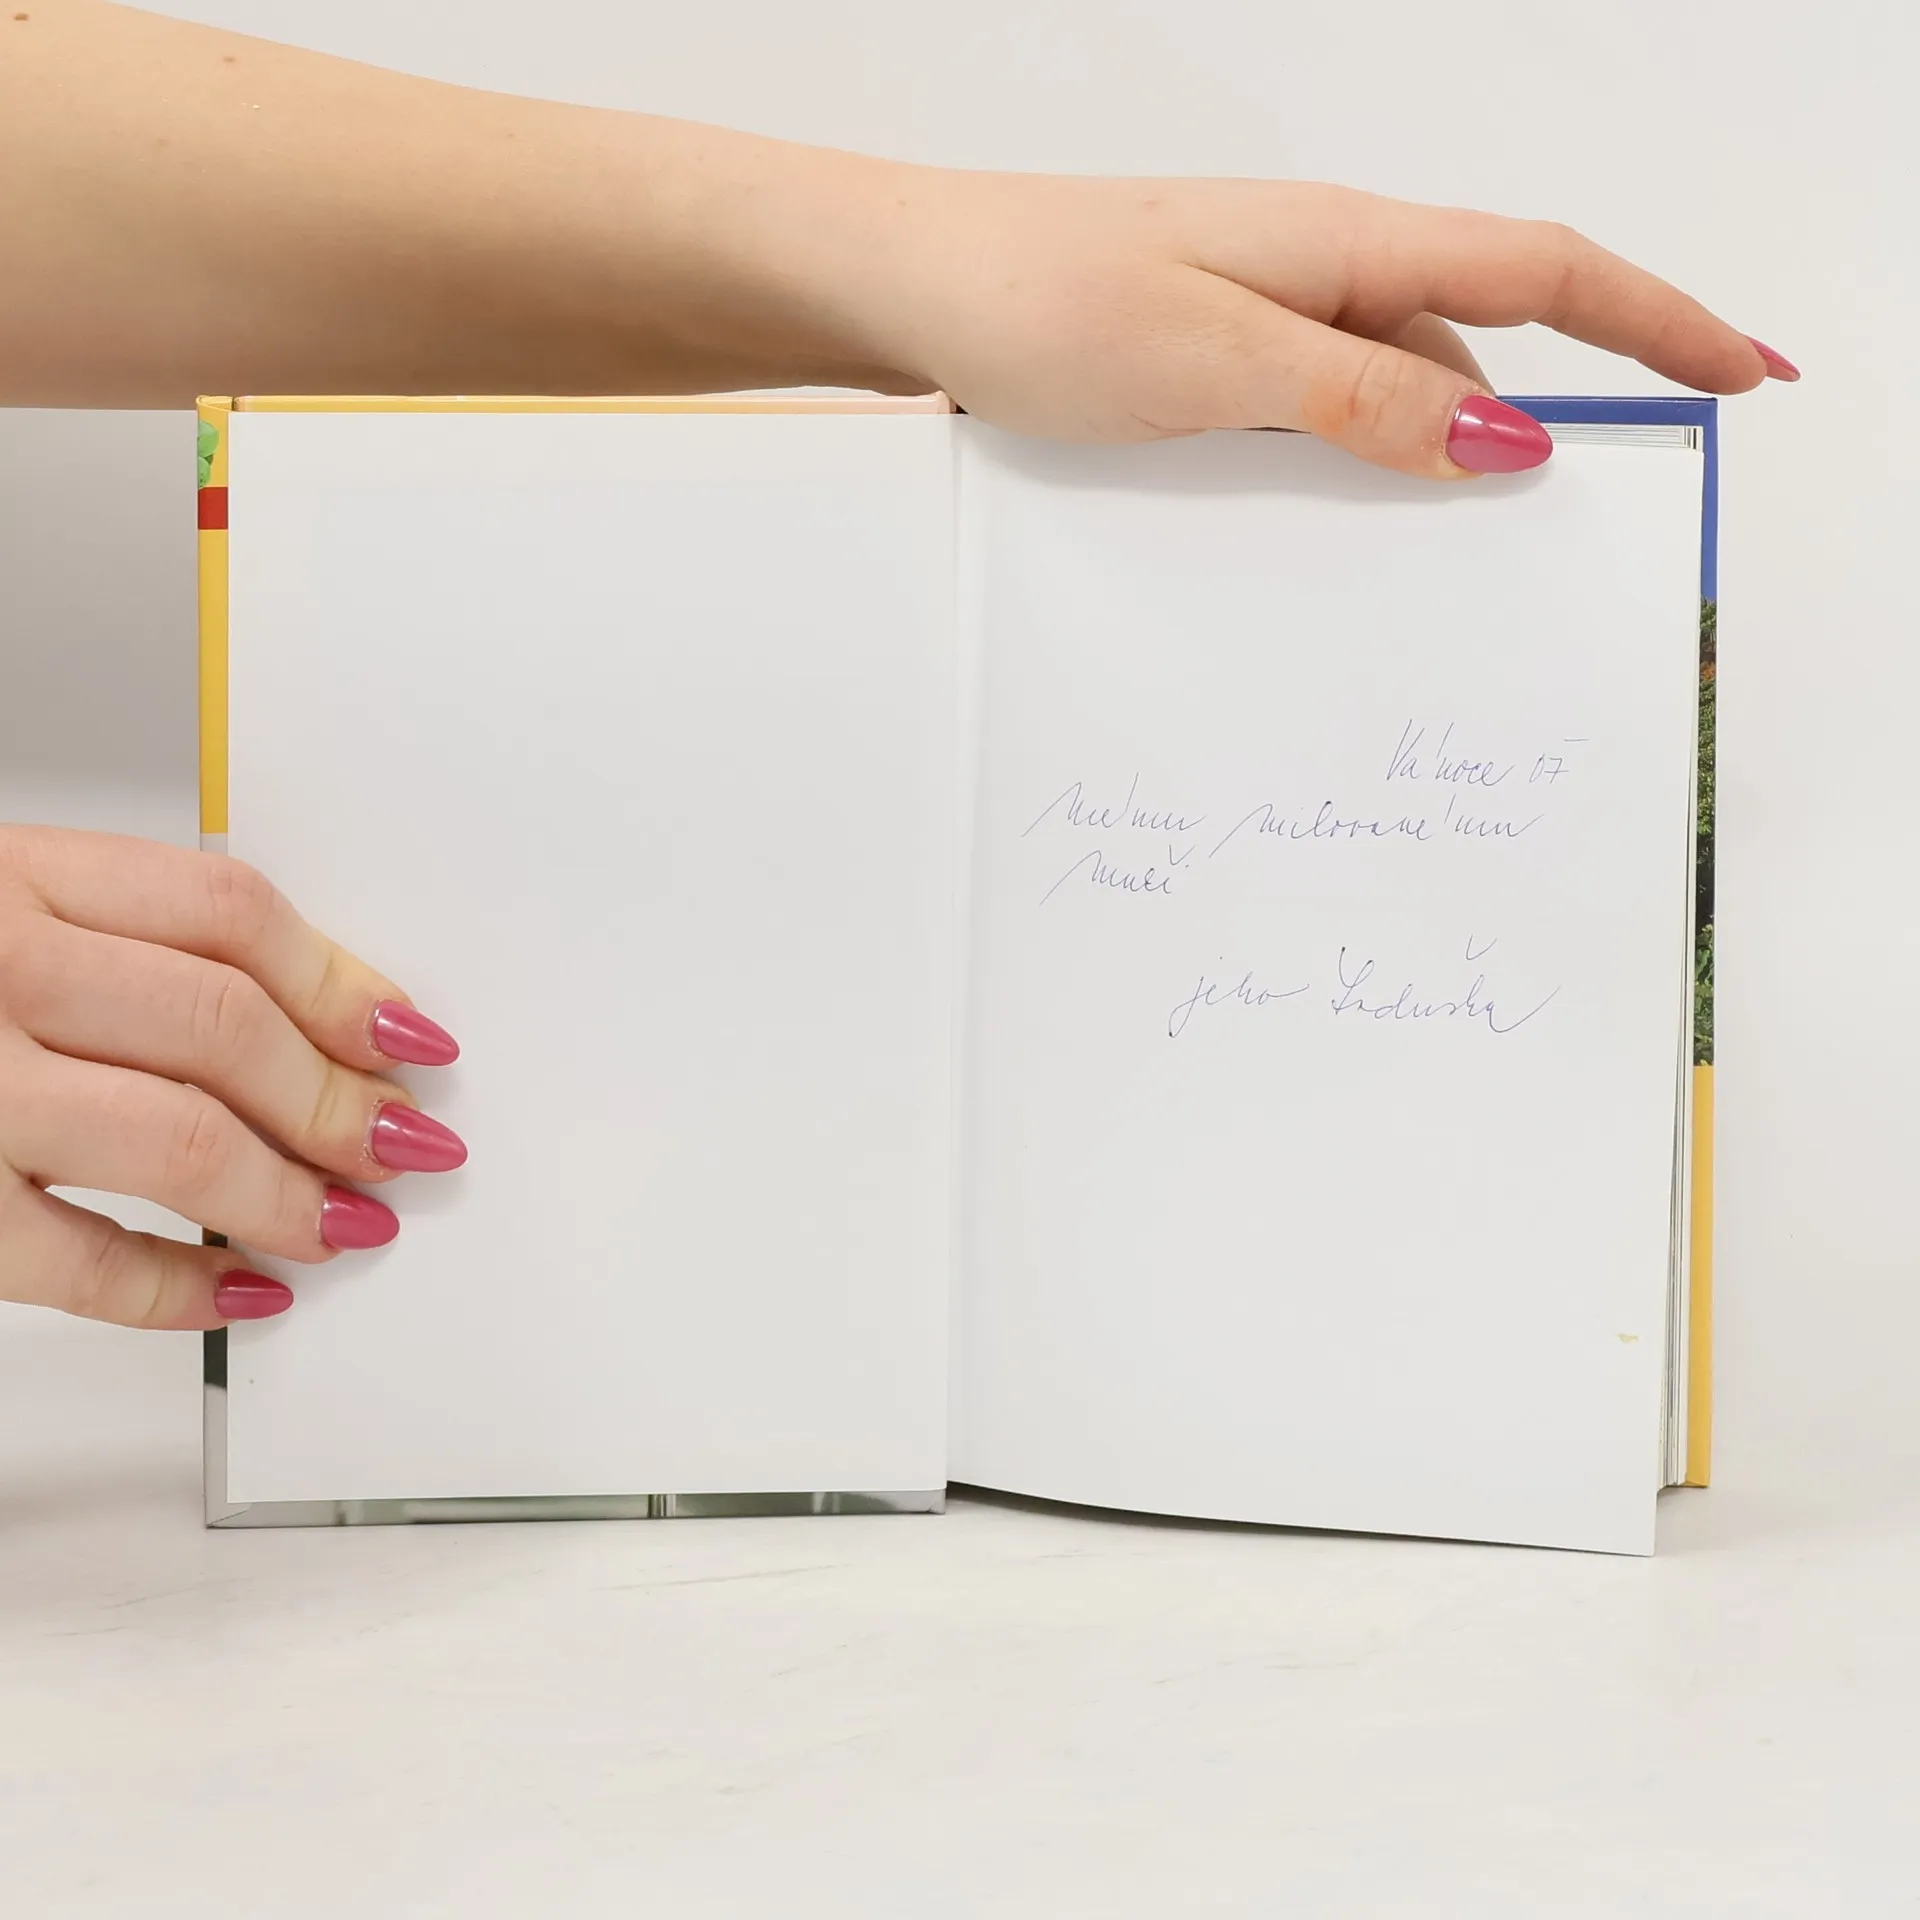 Vánoce 07
mému milovanému
muži
jeho Laduška